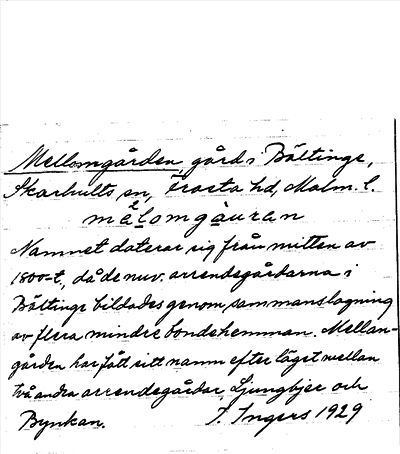 Mellomgården gård i Bältinge,
Skarhults sn, Frosta hd, Malm. l.
mèlomgàuran
Namnet daterar sig från mitten av
1800-t, då de nuv. arrendegårdarna i
Bältinge bildades genom sammanslagning
av flera mindre bondehemman. Mellan-
gården har fått sitt namn efter läget mellan
två andra arrendegårdar, Ljungbjer och
Bynkan. F. Ingers 1929